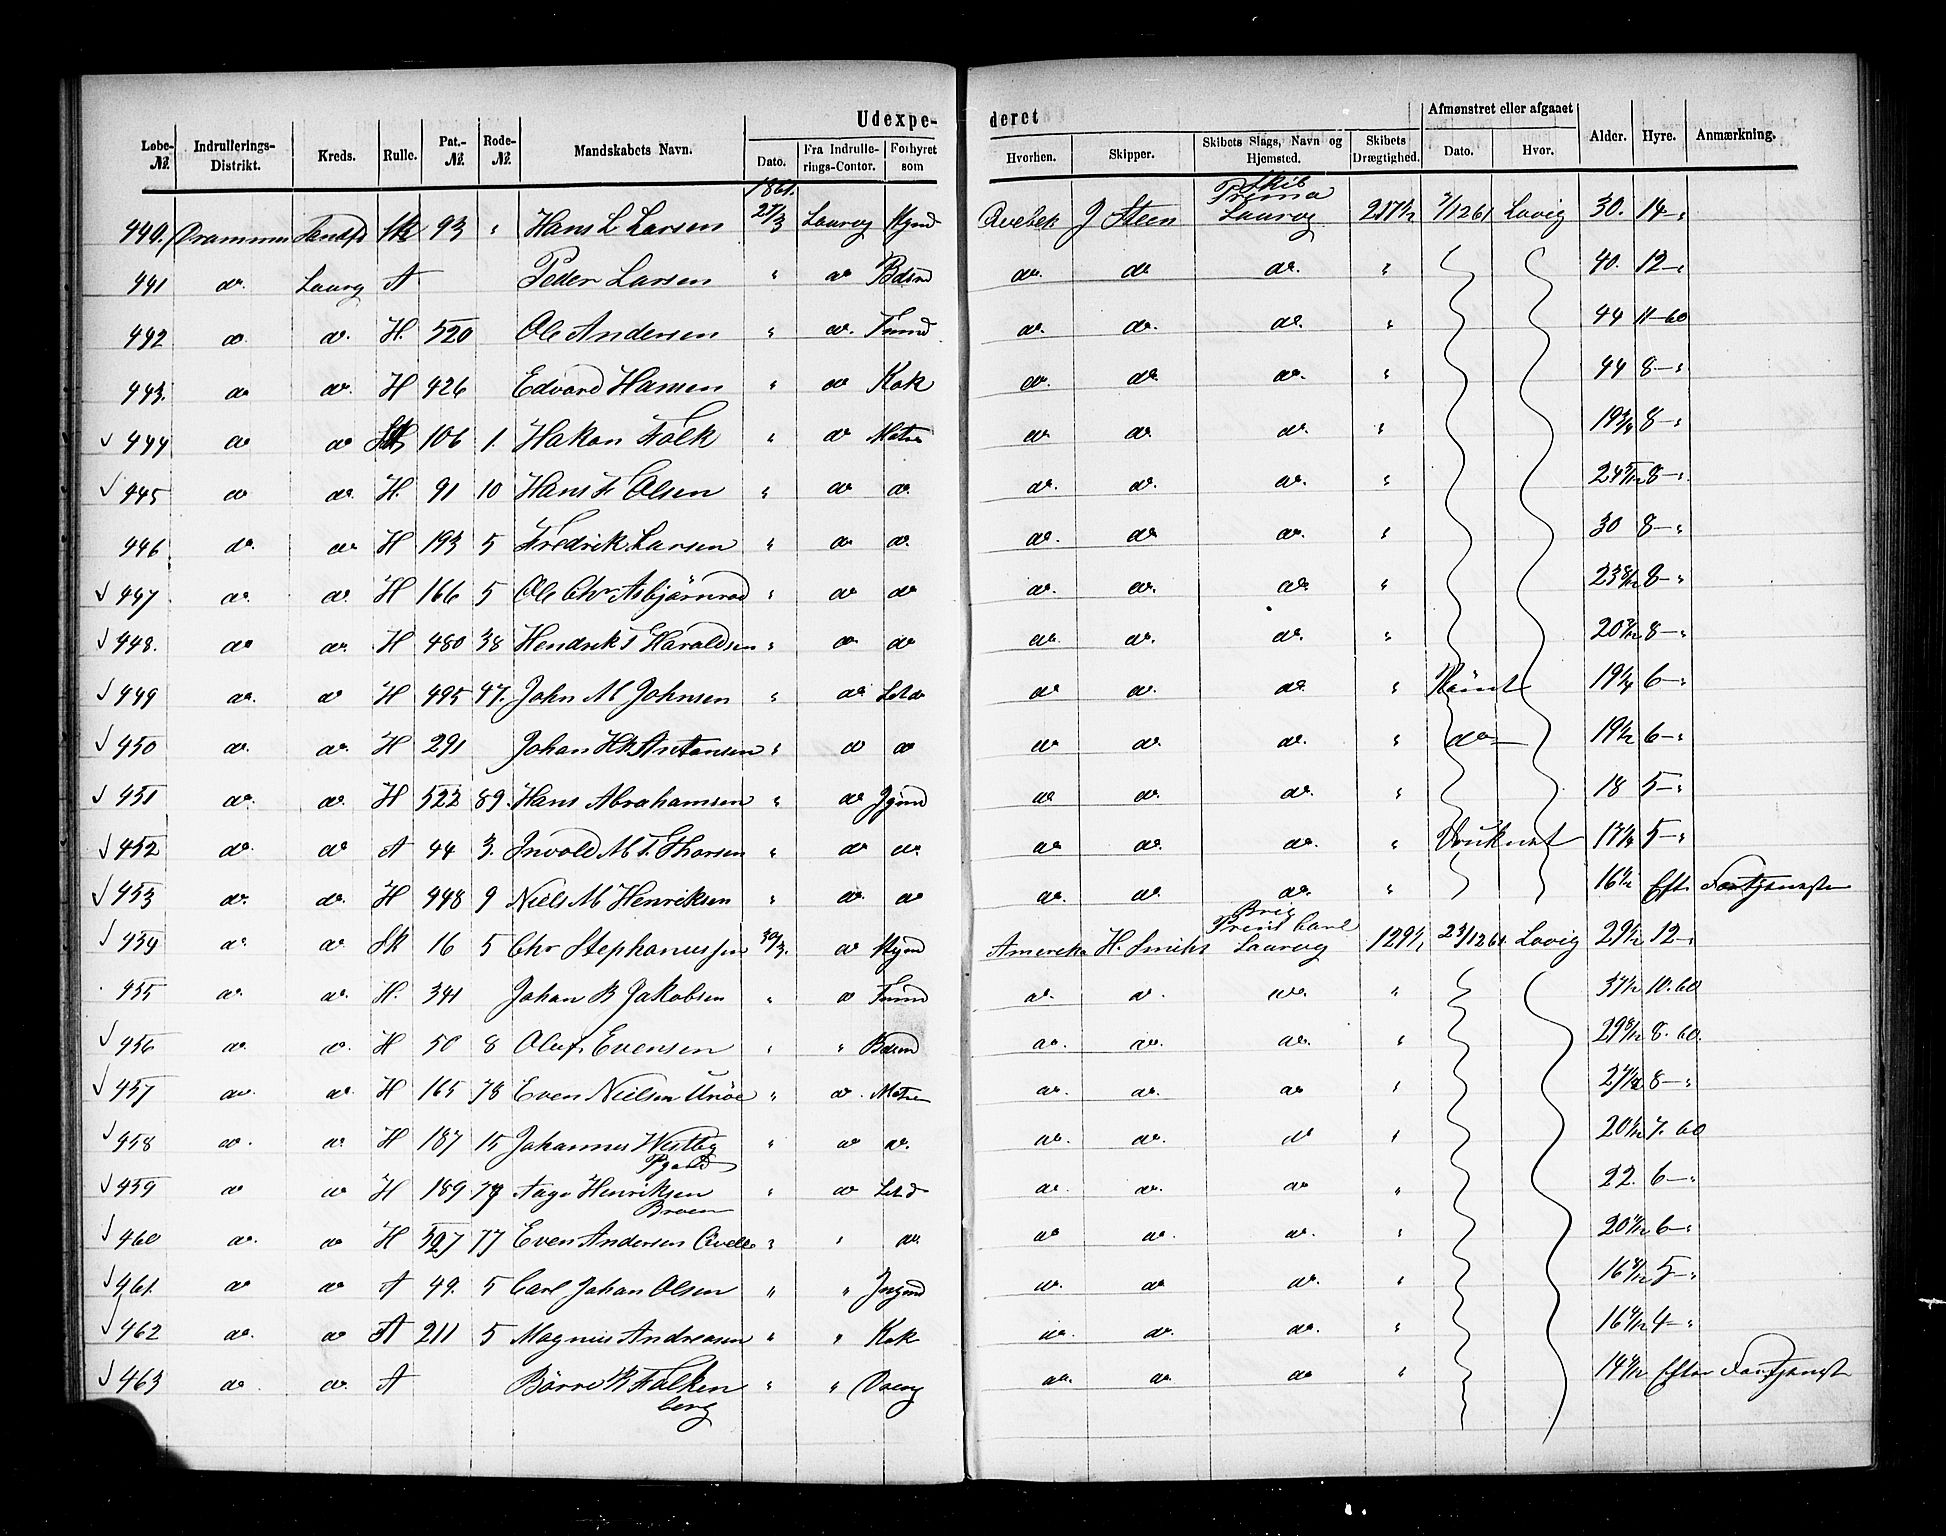 Udexpe- deret
Løbe- № Indrullerings- Distrikt. Kreds. Rulle. Pat.- № Rode- № Mandskabets Navn. Dato. Fra Indrulle- rings-Contor. Forhyret som Hvorhen. Skipper. Skibets Slags, Navn og Hjemsted. Skibets Drægtighed. Afmønstret eller afgaaet Dato. Hvor. Alder. Hyre. Anmærkning.
1861.
440. Drammen Sk 93 " Hans L Larsen 27/3 Laurvg Qvebek J Steen Skib Prima Laurvg 217½ 7/12 61 Lavig 30. 14-"
441 do. Laurg A Peder Larsen " do do. do do. " 40. 12-"
442 do do. H. 520 Ole Andersen " do. Tmmd do. do. do. " 44 11-60
443. do do. H 426 Edvard Hansen " do Kok do. do. do. " 44 8-"
444 do do Sk 106 1. Hakon Falk " do Matrs do do. do. " 19¾ 8-"
445 do do. H. 91 10 Hans F Olsen " do do. do. do. do. " 8-"
446 do. do H 193 5 Fredrik Larsen " do do. do. do. do. " 30 8-"
447 do. do. H 166 5 Ole Chr Asbjørnrød " do do do. do. do " 8-"
448. do do. H 480 38 Hendrik T Haraldsen " do do do. do. do. " 8-"
449 do. do H 495 47. John M Johnsen " do Letd do do. do. " Rømt 6-"
450 do. do. H 291 Johan HK Antonsen " do do do do. do. " do 6-"
451 do. do. H 522 89. Hans Abrahamsen " do Jgmd do do. do. " 18 5-"
452 do. do A 44 3. M. T. Thorsen " do do. do do. do. " Druknet 5-"
453 do. do. H 448 9 Niels M Henriksen " do. do do do. do. " Eft. Fortjeneste
454 do. do Sk 16 5 Chr Stephanussen 30/3. do Amerika H. Smith Brig Prins Carl Laurvg 129½ 23/12 61. Lavig 12-"
455 do. do. H. 341 Johan B Jakobsen " do Tmmd do. do. do. " 10. 60
456 do. do. H 50 8 Oluf Evensen " " do. do. do. " 8. 60.
457 do. do. H 165 78 Even Nielsen Unöe " do. Matrs do. do. do " 8-"
458 do. do H 187 15 Johannes Westby " do do. do. do. do " 7. 60
459 do do H 189 Aage Henriksen Broen " do Letd do. do. do " 22. 6-"
460 do. do H 527 77 Even Andersen " " do. do do. do. " 6-"
461. do do A 49. 5 Carl Johan Olsen " " Jngmd do. do do. " 5-"
462 do. do A 211 5 Magnus Andreasen " " Kok do. do. do. " 4-"
463 do. do. A Börre B Falken berg " " do. do. do " Efter Fortjenest